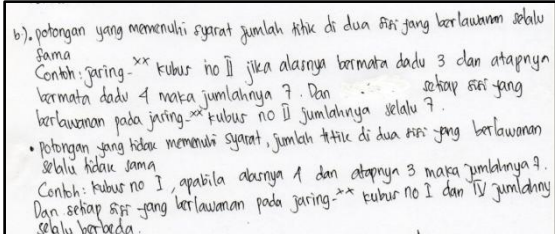 b). potongan yang memenuhi syarat jumlah titik di dua sisi yang berlawanan selalu
sama
Contoh : jaring-** kubus no II jika alasnya bermata dadu 3 dan atapnya
bermata dadu 4 maka jumlahnya 7. Dan setiap sisi yang
berlawanan pada jaring-** kubus no II jumlahnya selalu 7.
• potongan yang tidak memenuhi syarat, jumlah titik di dua sisi yang berlawanan
selalu tidak sama
Contoh : kubus no I, apabila alasnya 1 dan atapnya 3 maka jumlahnya 7.
Dan setiap sisi yang berlawanan pada jaring-** kubus no I dan IV jumlahny
selalu berbeda.